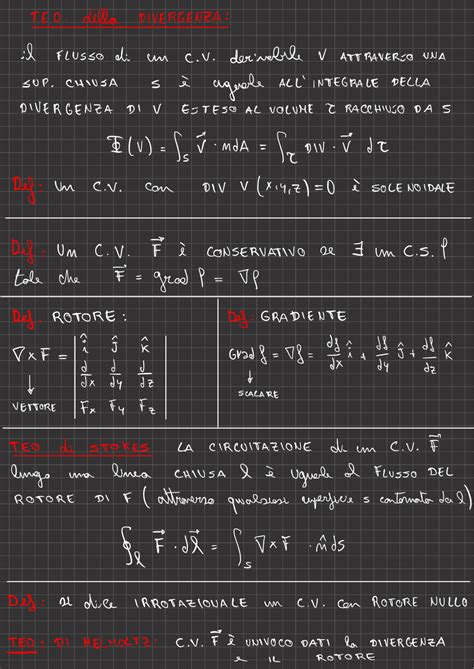 TEO. della DIVERGENZA:
il FLUSSO di un C.V. derivabile V ATTRAVERSO UNA
SUP. CHIUSA S è uguale ALL'INTEGRALE DELLA
DIVERGENZA DI V ESTESO AL VOLUME τ RACCHIUSO DA S
Φ(V) = ∫_S V⃗ · n dA = ∫_τ DIV · V⃗ dτ
Def: Un C.V. con DIV V(x,y,z) = 0 è SOLENOIDALE
Def: UM C.V. F⃗ è CONSERVATIVO se ∃ un C.S. f
tale che F⃗ = grad f = ∇f
Def. ROTORE:
∇×F = | î ĵ k̂ |
| d/dx d/dy d/dz |
| Fx Fy Fz |
↓
VETTORE
Def: GRADIENTE
Grad f = ∇f = df/dx î + df/dy ĵ + df/dz k̂
↓
SCALARE
TEO di STOKES LA CIRCUITAZIONE di un C.V. F⃗
lungo una linea CHIUSA l è uguale al FLUSSO DEL
ROTORE DI F (attraverso qualsiasi superficie s contornata da l)
∮_l F⃗ · dl⃗ = ∫_S ∇×F · n̂ ds
Def: si dice IRROTAZIONALE un C.V. con ROTORE NULLO
TEO: DI HELMOLTZ: C.V. F⃗ è UNIVOCO DATI la DIVERGENZA
e IL ROTORE